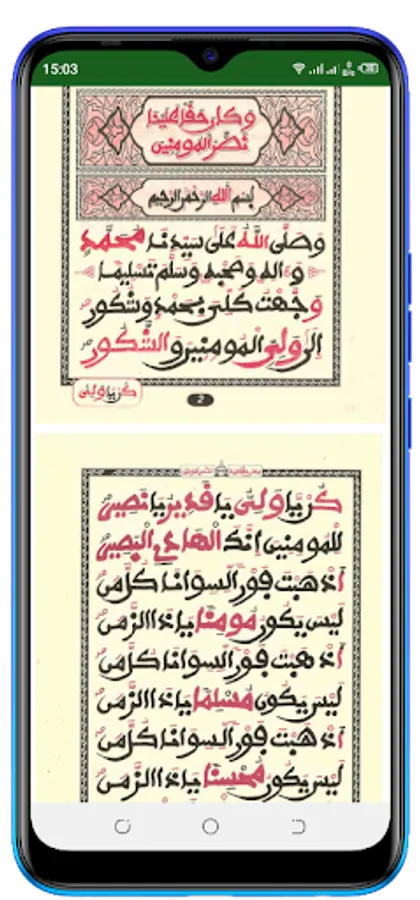 15:03
وكان حقا علينا
نصر المومنين
بسم الله الرحمن الرحيم
وصلى الله على سيدنا محمد
وءاله وصحبه وسلم تسليما
وجهت كلى بحمد وشكور
إلى ولى المومنين والشكور
كن يا ولى
2
كن يا ولى يا قدير يا نصير
للمومنين إنك الهادى البصير
أذهبت فور السوانا كل من
ليس يكون مومنا ياذا الزمن
أذهبت فور السوانا كل من
ليس يكون مسلما ياذا الزمن
أذهبت فور السوانا كل من
ليس يكون محسنا ياذا الزمن